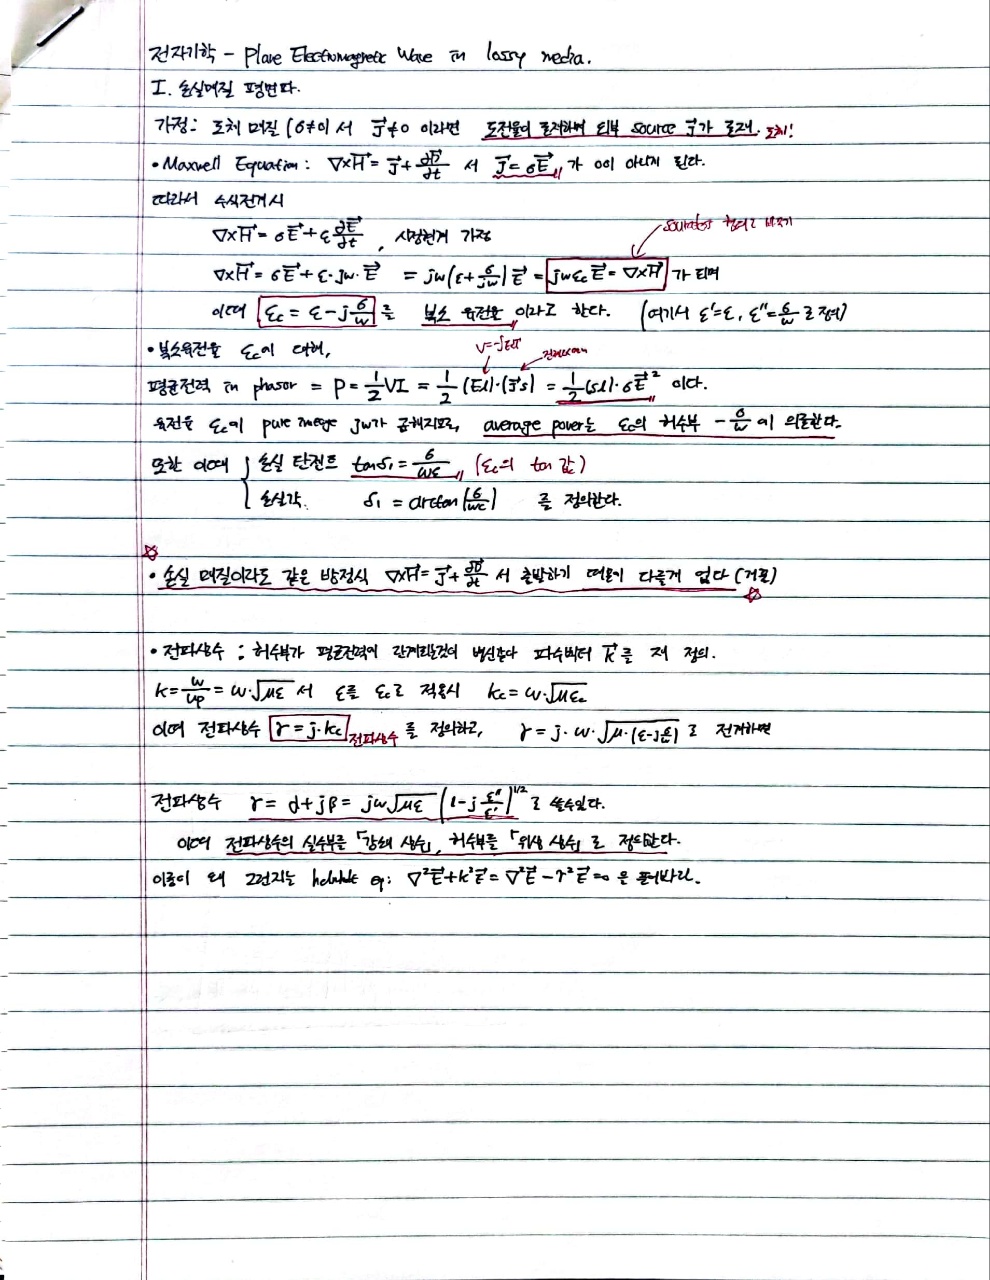 전자기학 - Plane Electromagnetic Wave in lossy media.
I. 손실매질 평면파.
가정: 도체 매질 (σ≠0)서 J⃗≠0 이라면 도전율이 존재하며 외부 source J⃗가 존재. 도체!
• Maxwell Equation: ∇×H⃗ = J⃗ + ∂D⃗/∂t 서 J⃗ = σE⃗ 가 0이 아니게 된다.
따라서 수식전개시
∇×H⃗ = σE⃗ + ε ∂E⃗/∂t, 시정현계 가정
sourceless 형태로 바꾸기
∇×H⃗ = σE⃗ + ε·jω·E⃗ = jω(ε + σ/jω)E⃗ = jωε_c E⃗ = ∇×H⃗ 가 되며
이때 ε_c = ε - j σ/ω 를 복소 유전율 이라고 한다. (여기서 ε'=ε, ε''=σ/ω 로 정의)
• 복소유전율 ε_c에 대해,
V=-∫Edl
평균전력 in phasor = P = 1/2 VI = 1/2 (El)·(J⃗s) = 1/2 (sl)·σE⃗² 이다.
유전율 ε_c에 pure image jω가 곱해지므로, average power는 ε_c의 허수부 - σ/ω 에 의존한다.
또한 이때 { 손실 탄젠트 tanδ₁ = σ/ωε (ε_c의 tan 값)
손실각. δ₁ = arctan(σ/ωε) 를 정의한다.
☆
• 손실 매질이라도 같은 방정식 ∇×H⃗ = J⃗ + ∂D⃗/∂t 서 출발하기 때문에 다를게 없다 ☆
• 전파상수 : 허수부가 평균전력에 관계되는것에 파수벡터 k⃗를 재 정의.
k = ω/u_p = ω·√με 서 ε를 ε_c로 적용시 k_c = ω·√με_c
이때 전파상수 γ = j·k_c 전파상수 를 정의하고, γ = j·ω·√μ·(ε-jσ/ω) 로 전개하면
전파상수 γ = α + jβ = jω√με (1 - j ε''/ε')^1/2 로 쓸수있다.
이때 전파상수의 실수부를 「감쇄 상수」, 허수부를 「위상 상수」로 정의한다.
이름이 왜 그런지는 eq: ∇²E⃗ + k²E⃗ = ∇²E⃗ - γ²E⃗ = 0 을 풀어봐라.